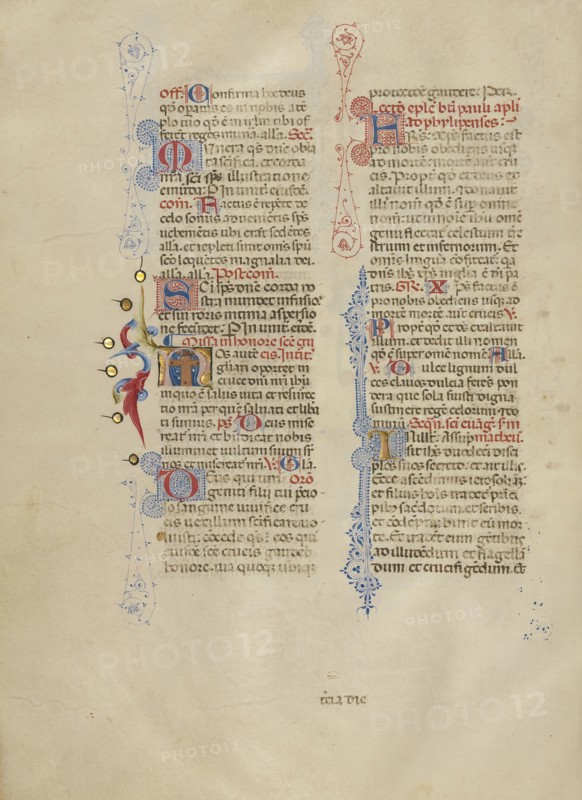 off. Confirma hoc deus
qd opatus es in nobis a tē
plo tuo qd ē in irlm tibi of
ferēt reges munā. alla. Secr.
Munera qs dne obla
ta scifica. et corda
nra sci sps illustratione
emūda. P. In unitē eiusdē.
com. Factus ē repēte de
celo sonus aduenientis sps
uehementis ubi erāt sedētes
alla. et repleti sunt oms spu
sco loquētes magnalia dei.
alla. alla. Postcom.
Sci sps dne corda no
stra mundet infusio.
et sui roris intima aspersio
ne fecūdet. P. In unitē eiusdē.
Missa in honore scē cru
Nos autē cis. Introit.
gliari oportet in
cruce dni nri ihu
in quo ē salus uita et resurre
ctio nra per quē saluati et libe
ti sumus. ps. Deus mise
reat nri et bndicat nobis
illuminet uultum suum sr
nos et misereat nri. V. Gla.
Deus qui uni Oro
geniti filij tui pcio
so sanguine uiuifice cru
cis uexillum scificare uo
luisti. cōcede qs. eos qui
eiusdē scē crucis gaudēt
honore. tua quoqz ubiqz
protectōe gaudere. Per.
Lectō eplē bti pauli apli
ad phylipenses.
Frs. Xps factus est
pro nobis obediens usqz
ad mortē. mortē autē cru
cis. Propt qd et deus ex
altauit illum. et donauit
illi nom qd ē sup omne
nom. ut in noīe ihu omē
genu flectat celestium ter
restrium et infernorum. Et
omis lingua cōfiteat. qa
dns ihs xps in glīa ē di pa
tris. GR. Xps factus ē
pro nobis obediens usqz ad
mortē mortē autē crucis. V.
Propt qd et ds exaltauit
illum. et dedit illi nomen
qd ē super omē nomē. Alla.
V. Dulce lignum dul
ces clauos dulcia ferēs pon
dera que sola fuisti digna
sustinere regē celorum et do
minum. Seqn. sci euāg. sm
In illo t. Assūp matheum.
sit ihs duodecī disci
plos suos secreto. et ait illis.
Ecce ascēdimus ierosolimā.
et filius hois tradet prīci
pibz sacerdotum. et scribis.
et cōdēpnabunt eum mor
te. Et tradēt eum gētibus
ad illudēdum et flagellā
dum et crucifigēdum. Et
tcia die
PHOTO12